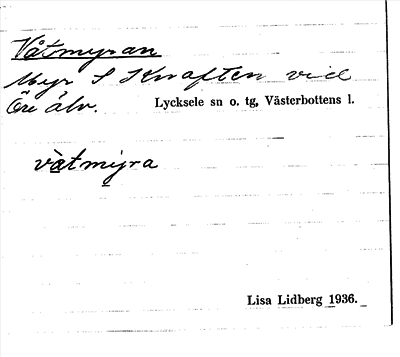 Våtmyran
Myr S Knaften vid
Öre älv. Lycksele sn o. tg, Västerbottens l.
våtmyra
Lisa Lidberg 1936.